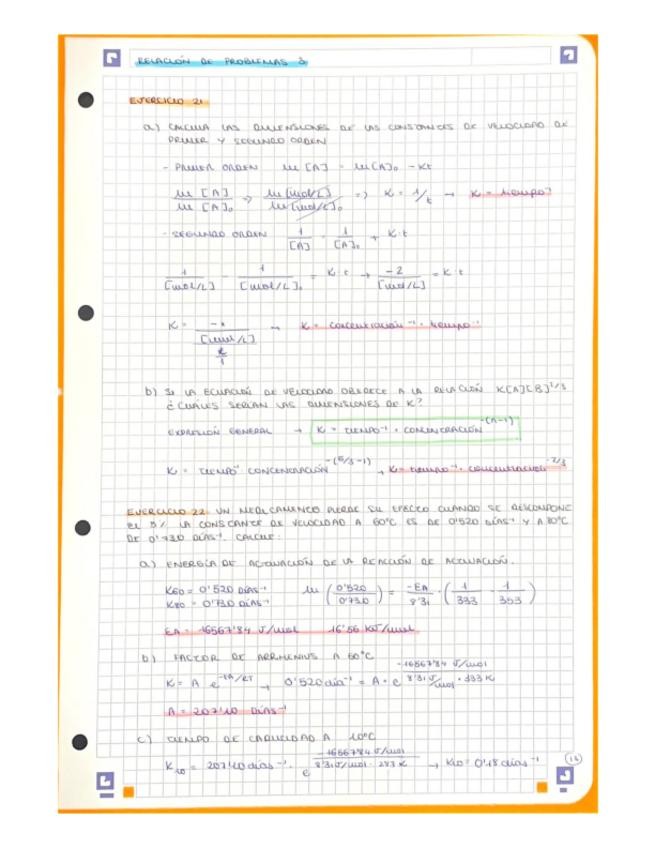 RELACIÓN DE PROBLEMAS 3
EJERCICIO 21
a) CALCULA LAS DIMENSIONES DE LAS CONSTANTES DE VELOCIDAD DE
PRIMER Y SEGUNDO ORDEN
- PRIMER ORDEN ln [A] = ln [A]₀ - Kt
ln [A] / ln [A]₀ => ln [mol/L] / ln [mol/L]₀ => K = 1/t → K = tiempo⁻¹
- SEGUNDO ORDEN 1/[A] = 1/[A]₀ + K·t
1/[mol/L] - 1/[mol/L]₀ = K·t → -2/[mol/L] = K·t
K = → K = concentración⁻¹ · tiempo⁻¹
b) SI LA ECUACIÓN DE VELOCIDAD OBEDECE A LA RELACIÓN K[A][B]^2/3
¿CUÁLES SERÍAN LAS DIMENSIONES DE K?
EXPRESIÓN GENERAL → K = TIEMPO⁻¹ · CONCENTRACIÓN^-(n-1)
K = TIEMPO⁻¹ CONCENTRACIÓN^-(5/3-1) → K = tiempo⁻¹ · concentración^-2/3
EJERCICIO 22 UN MEDICAMENTO PIERDE SU EFECTO CUANDO SE DESCOMPONE
EL 5%. LA CONSTANTE DE VELOCIDAD A 60ºC ES DE 0'520 DÍAS⁻¹ Y A 80ºC
DE 0'730 DÍAS⁻¹. CALCULE:
a) ENERGÍA DE ACTIVACIÓN DE LA REACCIÓN DE ACTIVACIÓN.
K60 = 0'520 DÍAS⁻¹ ln (0'520/0'730) = -EA/8'31 · (1/333 - 1/353)
K80 = 0'730 DÍAS⁻¹
EA = 16567'84 J/mol 16'56 KJ/mol
b) FACTOR DE ARRHENIUS A 60ºC
K = A e^-EA/RT → 0'520 día⁻¹ = A · e^(-16567'84 J/mol / 8'31 J/mol · 333 K)
A = 207'10 DÍAS⁻¹
c) TIEMPO DE CADUCIDAD A 10ºC
K₁₀ = 207'10 días⁻¹ · e^(-16567'84 J/mol / 8'31 J/mol · 283 K) → K₁₀ = 0'18 días⁻¹